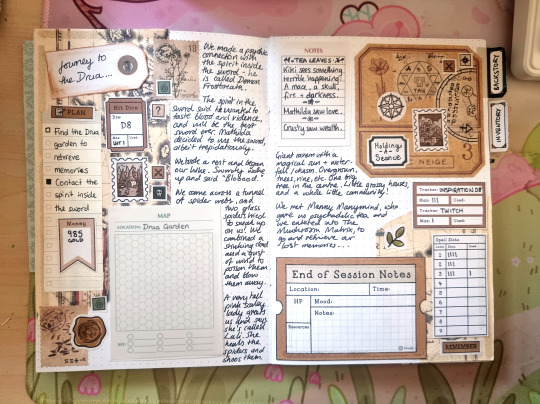 Journey to
the Drua...
18
PLAN
Find the Drua
garden to
retrieve
memories
Contact the
spirit inside
the sword
Money
985
GOLD
Hit Dice
Size
D8
Max
WR1
We made a psychic
connection with
the spirit inside
the sword - he
is called Demon
Frostreath.
The spirit in the
sword said he wanted to
taste blood and violence,
and will be the best
sword ever. Mathilda
decided to use the sword,
albeit trepidatiously.
We took a rest and began
our hike. Snumley woke
up and said "Blooood."
We came across a tunnel
of spider webs, and
two glass
spiders tried
to sneak up
on us! We
combined a
stinking cloud
and a gust
of wind to
poison them
and blow
them away...
A very tall
pink scaley
lady greets
us and says
she's called
Lali. She
heals the
spiders and
shoos them.
MAP
LOCATION: Drua Garden
KEY:
NOTES
TEA LEAVES
Kiki sees something
terrible happening!
A mace, a skull,
fire + darkness.
Mathilda saw love.
Crusty saw wealth.
Holding
- A -
Seance
NEIGE
3
Giant cavern with a
magical sun + water-
fall / chasm. Overgrown,
trees, vine, etc. One big
tree in the centre. Little grassy houses,
and a whole little community!
We met Manley Manymind, who
gave us psychadelic tea, and
we entered into The
Mushroom Matrix, to
go and retrieve our
lost memories...
End of Session Notes
Location:
Time:
HP
Mood:
Notes:
Resources
BACKSTORY
INVENTORY
Tracker: INSPIRATION D8
Max:
Used:
Tracker: TWITCH
Max:
Used:
Spell Slots
Level
Total
Used
1
2
3
4
5
6
7
8
9
REMEMBER